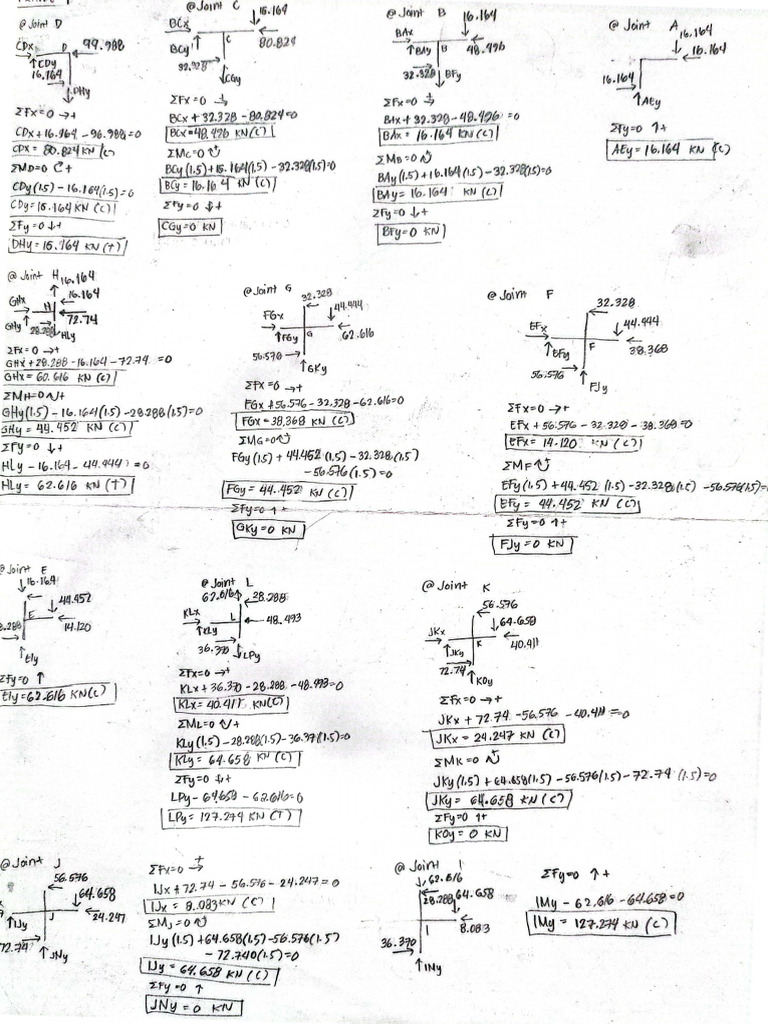 @ Joint D
99.988
CDx
D
CDy
16.164
DHy
ΣFx=0 →+
CDx+16.164-96.988=0
CDx = 80.824 KN (C)
ΣMD=0 ↻+
CDy(1.5)-16.164(1.5)=0
CDy=16.164 KN (C)
ΣFy=0 ↓+
DHy=16.164 KN (T)
@ Joint C
16.164
BCx
C
80.824
BCy
32.328
CGy
ΣFx=0 →+
BCx+32.328-80.824=0
BCx=48.496 KN (C)
ΣMC=0
BCy(1.5)+16.164(1.5)-32.328(1.5)=0
BCy=16.164 KN (C)
ΣFy=0 ↓+
CGy=0 KN
@ Joint B
16.164
BAx
BAy
B
48.496
32.328
BFy
ΣFx=0 →+
BAx+32.328-48.496=0
BAx = 16.164 KN (C)
ΣMB=0
BAy(1.5)+16.164(1.5)-32.328(1.5)=0
BAy = 16.164 KN (C)
ΣFy=0 ↓+
BFy=0 KN
@ Joint A
16.164
16.164
16.164
AEy
ΣFy=0 ↑+
AEy=16.164 KN (C)
@ Joint H
16.164
16.164
GHx
H
72.74
GHy
28.288
HLy
ΣFx=0 →+
GHx+28.288-16.164-72.74=0
GHx=60.616 KN (C)
ΣMH=0
GHy(1.5)-16.164(1.5)-28.288(1.5)=0
GHy=44.452 KN (C)
ΣFy=0 ↓+
HLy-16.164-44.444=0
HLy=62.616 KN (T)
@ Joint G
32.328
FGx
44.444
G
62.616
FGy
56.570
GKy
ΣFx=0 →+
FGx+56.576-32.328-62.616=0
FGx=38.368 KN (C)
ΣMG=0
FGy(1.5)+44.452(1.5)-32.328(1.5)
-56.576(1.5)=0
FGy=44.452 KN (C)
ΣFy=0 ↑+
GKy=0 KN
@ Joint F
32.328
EFx
44.444
F
38.368
EFy
56.576
FJy
ΣFx=0 →+
EFx+56.576-32.328-38.368=0
EFx=14.120 KN (C)
ΣMF
EFy(1.5)+44.452(1.5)-32.328(1.5)-56.576(1.5)=
EFy=44.452 KN (C)
ΣFy=0 ↑+
FJy=0 KN
@ Joint E
16.164
44.452
E
14.120
EIy
ΣFy=0 ↑
EIy=62.616 KN(C)
@ Joint L
62.616
28.288
KLx
L
48.493
KLy
36.370
LPy
ΣFx=0 →+
KLx+36.370-28.288-48.493=0
KLx=40.411 KN(C)
ΣML=0
KLy(1.5)-28.288(1.5)-36.37(1.5)=0
KLy=64.658 KN (C)
ΣFy=0 ↓+
LPy-64.658-62.616=0
LPy=127.274 KN (T)
@ Joint K
56.576
64.658
JKx
K
40.411
JKy
72.74
KOy
ΣFx=0 →+
JKx+72.74-56.576-40.411=0
JKx=24.247 KN (C)
ΣMK=0
JKy(1.5)+64.658(1.5)-56.576(1.5)-72.74(1.5)=0
JKy=64.658 KN (C)
ΣFy=0 ↑+
KOy=0 KN
@ Joint J
56.576
64.658
J
24.247
IJy
72.74
JNy
ΣFx=0 →+
IJx+72.74-56.576-24.247=0
IJx=8.083 KN (C)
ΣMJ=0
IJy(1.5)+64.658(1.5)-56.576(1.5)
-72.740(1.5)=0
IJy=64.658 KN (C)
ΣFy=0 ↑
JNy=0 KN
@ Joint I
62.616
28.288
64.658
I
8.083
36.370
INy
ΣFy=0 ↑+
IMy-62.616-64.658=0
IMy=127.274 KN (C)